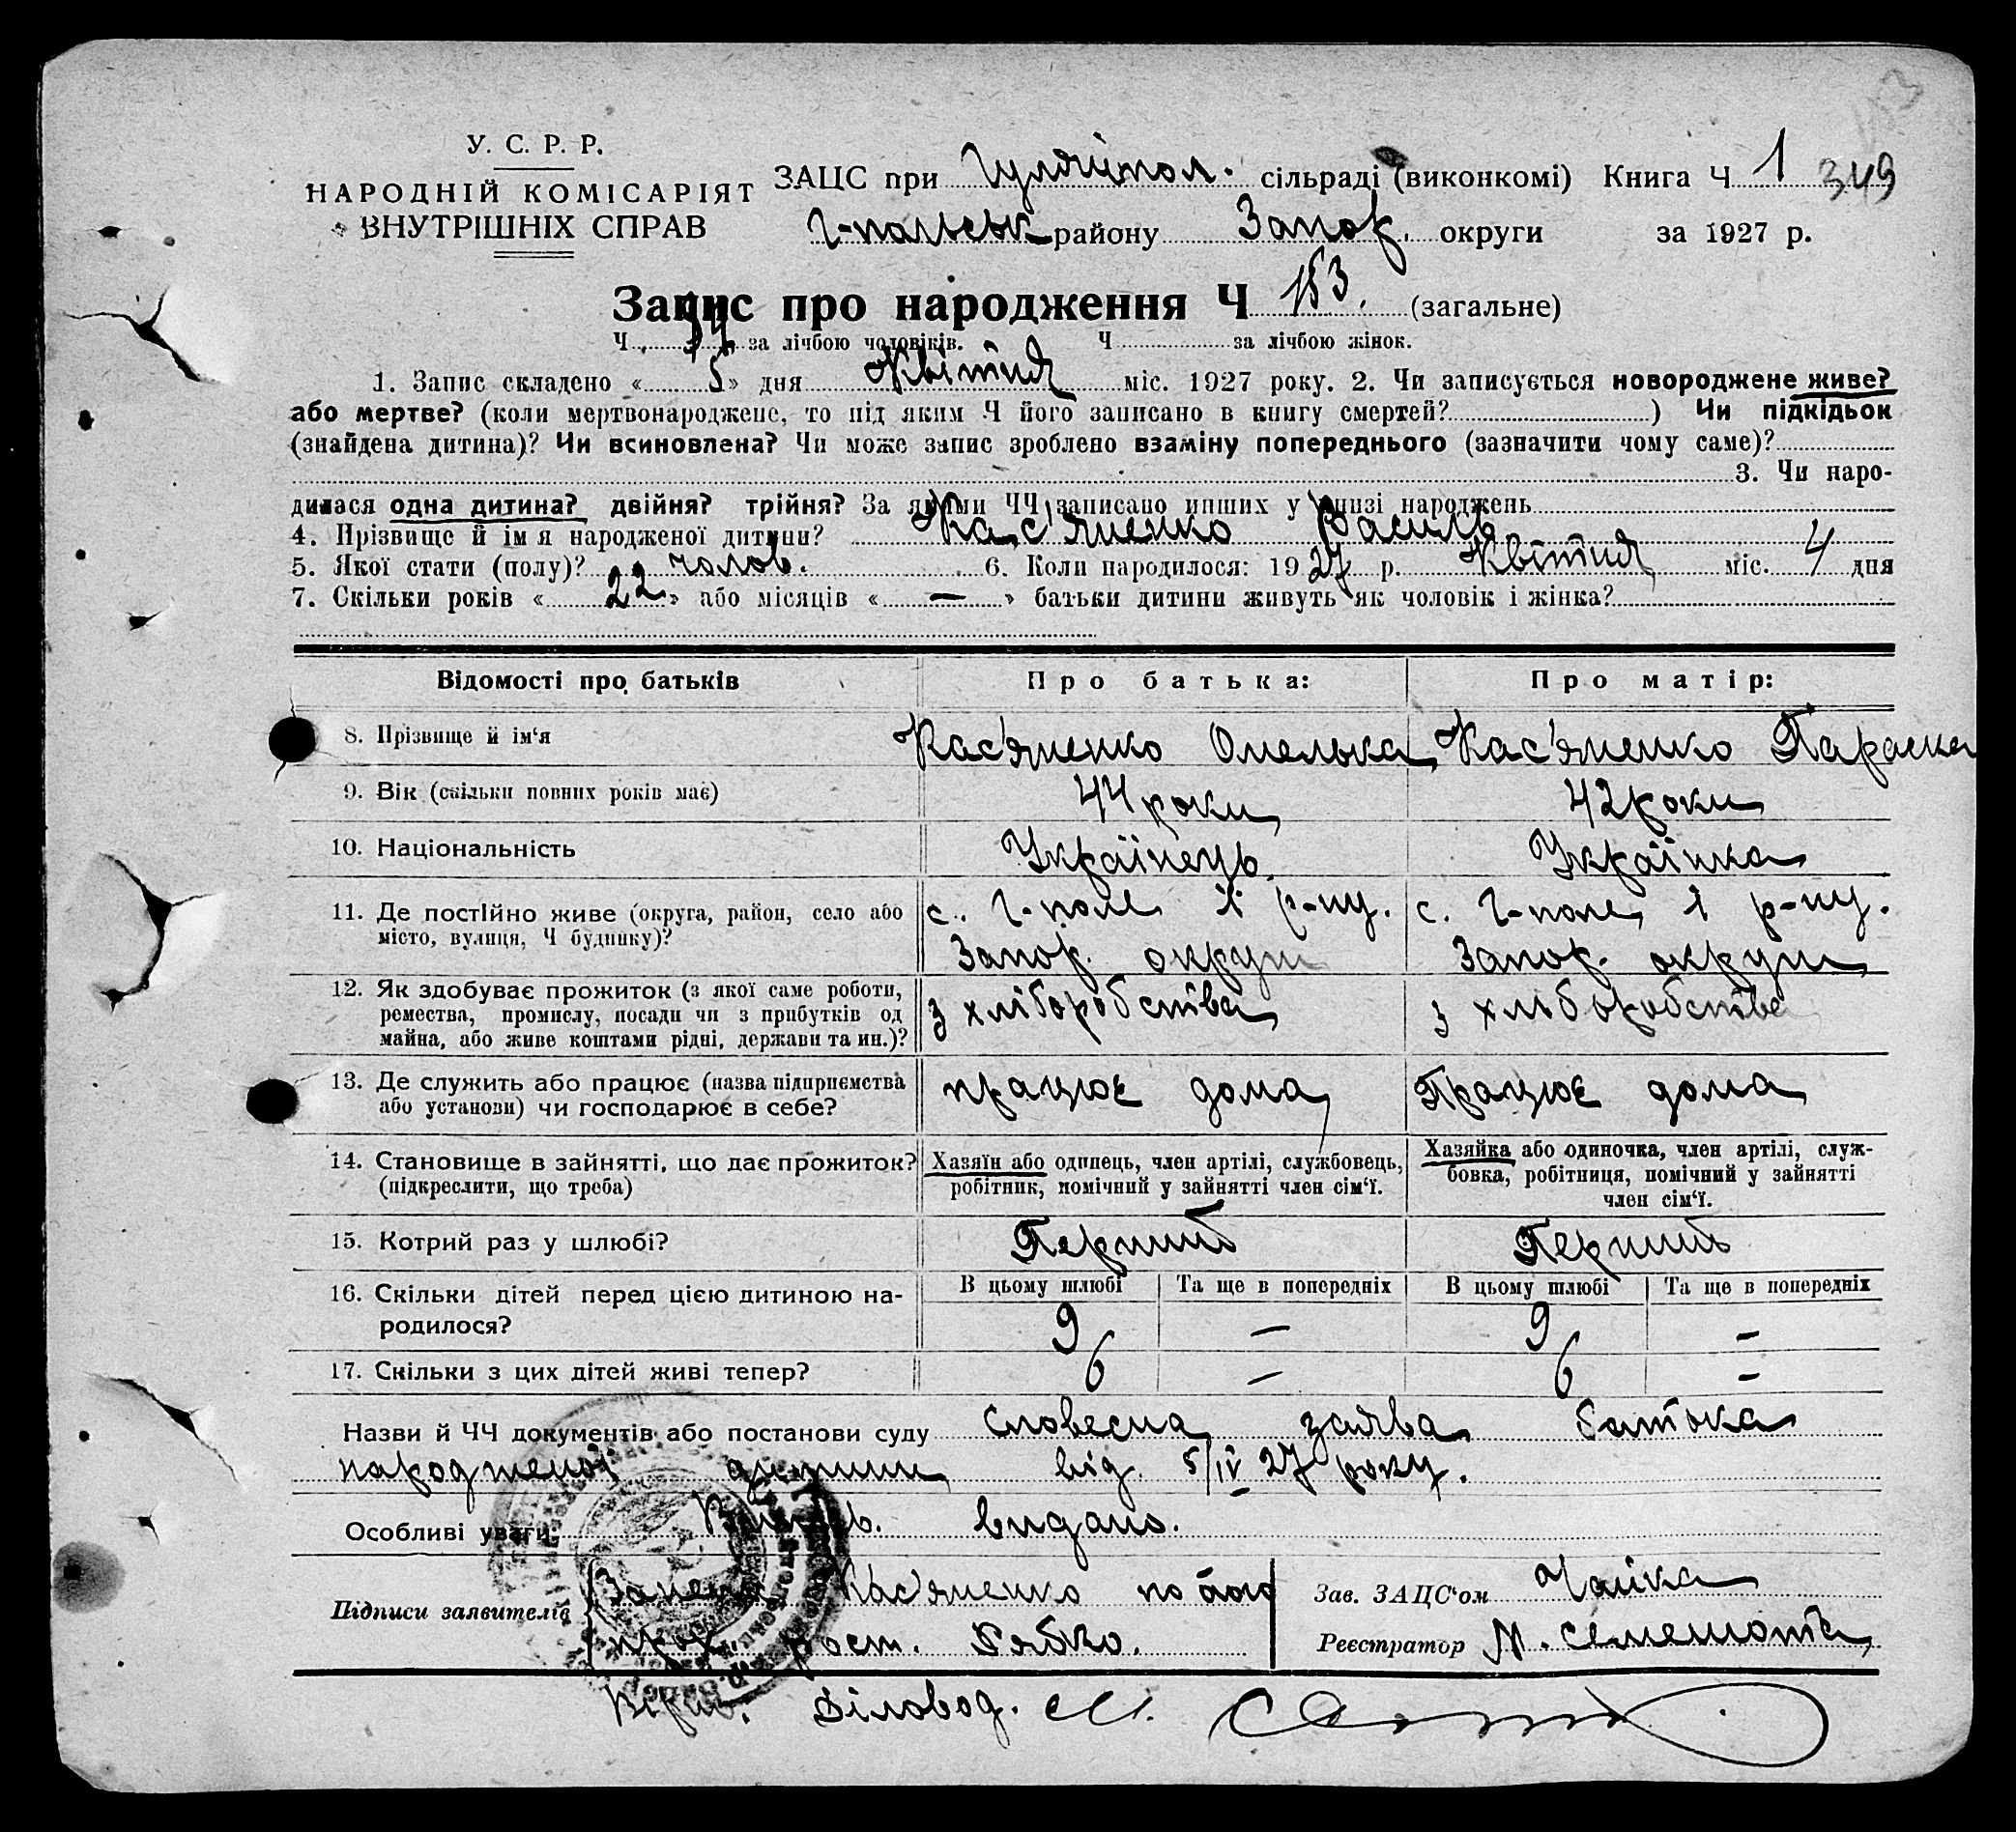 У. С. Р. Р.
НАРОДНІЙ КОМІСАРІЯТ
ВНУТРІШНІХ СПРАВ
ЗАЦС при Гуляйпол. сільраді (виконкомі) Книга Ч 1 349
Г-польськ району Запор. округи за 1927 р.
Запис про народження Ч 153. (загальне)
Ч за лічбою чоловіків. Ч за лічбою жінок.
1. Запис складено « 5 » дня Квітня міс. 1927 року. 2. Чи записується новороджене живе?
або мертве? (коли мертвонароджене, то під яким Ч його записано в книгу смертей? ) Чи підкідьок
(знайдена дитина)? Чи всиновлена? Чи може запис зроблено взаміну попереднього (зазначити чому саме)?
3. Чи наро-
дилася одна дитина? двійня? трійня? За якими ЧЧ записано инших у книзі народжень
4. Прізвище й ім я народженої дитини? Кас'яненко Василь
5. Якої стати (полу)? чолов. 6. Коли народилося: 1927 р. Квітня міс. 4 дня
7. Скільки років « 22 » або місяців « — » батьки дитини живуть як чоловік і жінка?
Відомості про батьків Про батька: Про матір:
8. Прізвище й ім‘я Кас'яненко Омелька Кас'яненко Параска
9. Вік (скільки повних років має) 44 роки 42 роки
10. Національність Українець Українка
11. Де постійно живе (округа, район, село або
місто, вулиця, Ч будинку)?
с. Г-поле р-ну.
Запор. округи
с. Г-поле, р-ну.
Запор. округи
12. Як здобуває прожиток (з якої саме роботи,
ремества, промислу, посади чи з прибутків од
майна, або живе коштами рідні, держави та ин.)?
з хліборобства з хліборобства
13. Де служить або працює (назва підприємства
або установи) чи господарює в себе?
працює дома Працює дома
14. Становище в зайнятті, що дає прожиток?
(підкреслити, що треба)
Хазяїн або одинець, член артілі, службовець,
робітник, помічний у зайнятті член сім‘ї.
Хазяйка або одиночка, член артілі, служ-
бовка, робітниця, помічний у зайнятті
член сім‘ї.
15. Котрий раз у шлюбі? Перший Перший
16. Скільки дітей перед цією дитиною на-
родилося?
В цьому шлюбі Та ще в попередніх В цьому шлюбі Та ще в попередніх
9 — 9 —
17. Скільки з цих дітей живі тепер? 6 — 6 —
Назви й ЧЧ документів або постанови суду словесна заява батька
народженої дитини від 5/IV 27 року.
Особливі уваги: видано.
Підписи заявителів Кас'яненко по його
прох. рост. Бабко.
Зав. ЗАЦС‘ом Чайка
Реєстратор М.
Вірно. Діловод.